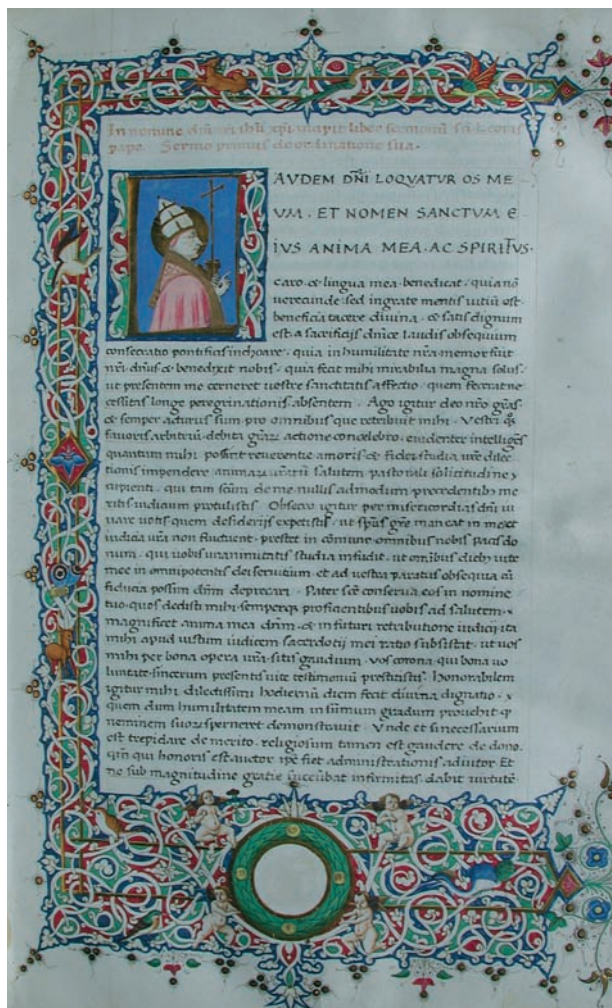 In nomine dni nri ihu xpi incipit liber sermonū sci Leonis
pape. Sermo primus de ordinatione sua.
LAVDEM DNI LOQVATVR OS ME
VM. ET NOMEN SANCTVM E
IVS ANIMA MEA. AC SPIRITVS.
caro. & lingua mea. benedicat. quia nō
uerecunde. sed ingrate mentis uitiū est.
beneficia tacere diuina. & satis dignum
est. a sacrificijs dnice laudis obsequium
consecratio pontificis inchoare. quia in humilitate nrā memor fuit
nri dnus & benedixit nobis. quia fecit mihi mirabilia magna solus.
ut presentem me cerneret uestre sanctitatis affectio. quem fecerat ne
cessitas longe peregrinationis absentem. Ago igitur deo nro grās.
& semper acturus sum pro omnibus que retribuit mihi. Vestri qs
fauoris arbitriū. debita actione concelebro. euidenter intelligēs
quantum mihi possint reuerentie amoris & fidei studia ure dilec
tionis impendere animarum salutem pastorali solicitudine
cupienti. qui tam scum de me nullis admodum precedentibus me
ritis iudicium protulistis. Obsecro igitur per misericordias dni iu
uare uotis quem desiderijs expetistis. ut spus gre maneat in me et
iudicia ura non fluctuent. prestet in cōmune omnibus nobis pacis do
num. qui uobis unanimitatis studia infudit. ut omibus diebus uite
mee in omnipotentis dei seruitium. et ad uestra paratus obsequia cū
fiducia possim dnm deprecari. Pater sce conserua eos in nomine
tuo. quos dedisti mihi. semperq proficientibus uobis ad salutem.
magnificet anima mea dnm. & in futuri retributione iudicij. ita
mihi apud iustum iudicem sacerdotij mei ratio subsistat. ut uos
mihi per bona opera ura. sitis gaudium. uos corona. qui bona uo
luntate. sincerum presentis uite testimoniū prestitistis. Honorabilem
igitur mihi dilectissimi hodiernū diem fecit diuina dignatio.
quem dum humilitatem meam in sūmum gradum prouehit q
neminem suorum sperneret demonstrauit. Vnde et si necessarum
est trepidare de merito. religiosum tamen est gaudere de dono.
qm qui honoris est auctor ipe fiet administrationis adiutor. Et
ne sub magnitudine gratie succūbat infirmitas. dabit uirtutē.